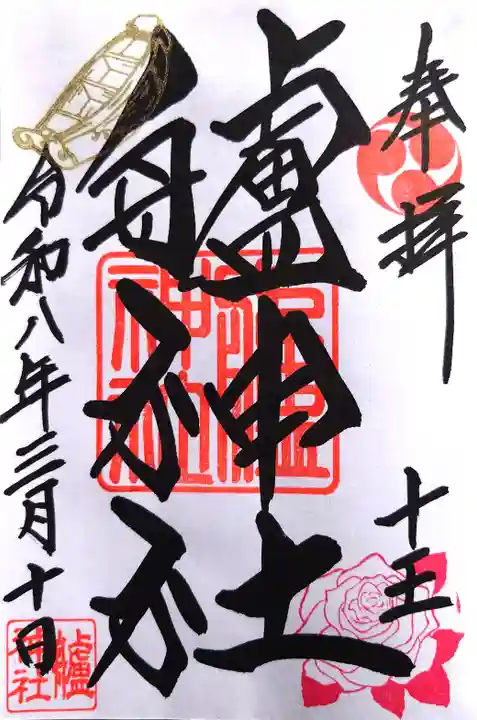 奉拝
十王
艫神社
艫神社
令和八年三月十日
艫神社